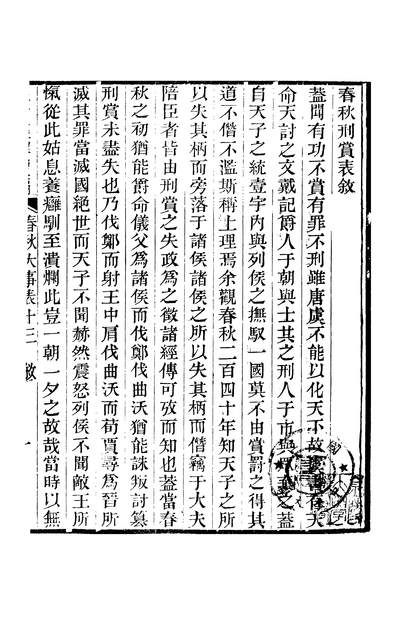 春秋刑賞表敘
蓋聞有功不賞有罪不刑雖唐虞不能以化天下故
命天討之文戴記爵人于朝與士共之刑人于市與之蓋
自天子之統壹宇內與列侯之撫馭一國莫不由賞罰之得其
道不僭不濫斯稱上理焉余觀春秋二百四十年知天子之所
以失其柄而旁落于諸侯諸侯之所以失其柄而僭竊于大夫
陪臣者皆由刑賞之失政為之徵諸經傳可攷而知也蓋當春
秋之初猶能爵命儀父為諸侯而伐鄭伐曲沃猶能誅叛討篡
刑賞未盡失也乃伐鄭而射王中肩伐曲沃而荀賈尋為晉所
滅其罪當滅國絕世而天子不聞赫然震怒列侯不聞敵王所
愾從此姑息養癰馴至潰爛此豈一朝一夕之故哉當時以無
春秋大事表十三 敘 一